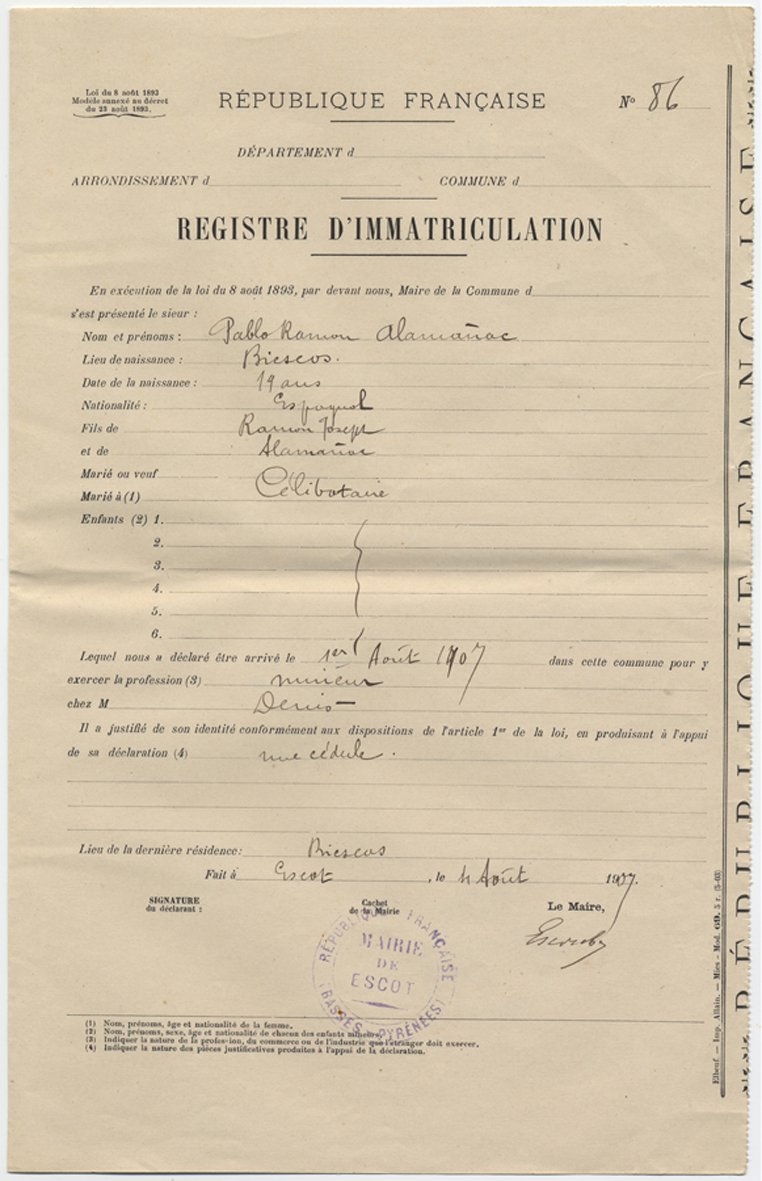 Loi du 8 août 1893
Modèle annexé au décret
du 23 août 1893.
RÉPUBLIQUE FRANÇAISE
N° 86
DÉPARTEMENT d
ARRONDISSEMENT d COMMUNE d
REGISTRE D'IMMATRICULATION
En exécution de la loi du 8 août 1893, par devant nous, Maire de la Commune d
s'est présenté le sieur :
Nom et prénoms : Pablo Ramon Alamañac
Lieu de naissance : Biescos.
Date de la naissance : 19 ans
Nationalité : Espagnol
Fils de Ramon Joseph
et de Alamañac
Marié ou veuf Célibataire
Marié à (1)
Enfants (2) 1.
2.
3.
4.
5.
6.
Lequel nous a déclaré être arrivé le 1er Août 1907 dans cette commune pour y
exercer la profession (3) mineur
chez M Denis
Il a justifié de son identité conformément aux dispositions de l'article 1er de la loi, en produisant à l'appui
de sa déclaration (4) une cédule.
Lieu de la dernière résidence : Biescos
Fait à Escot, le 4 Août 1907.
SIGNATURE
du déclarant :
Cachet
de la Mairie
Le Maire,
RÉPUBLIQUE FRANÇAISE
MAIRIE
DE
ESCOT
(BASSES-PYRÉNÉES)
(1) Nom, prénoms, âge et nationalité de la femme.
(2) Nom, prénoms, sexe, âge et nationalité de chacun des enfants mineurs.
(3) Indiquer la nature de la profession, du commerce ou de l'industrie que l'étranger doit exercer.
(4) Indiquer la nature des pièces justificatives produites à l'appui de la déclaration.
Elbeuf. — Imp. Allain. — Mies - Mod. 69. 5 r. (5-03)
RÉPUBLIQUE FRANÇAISE